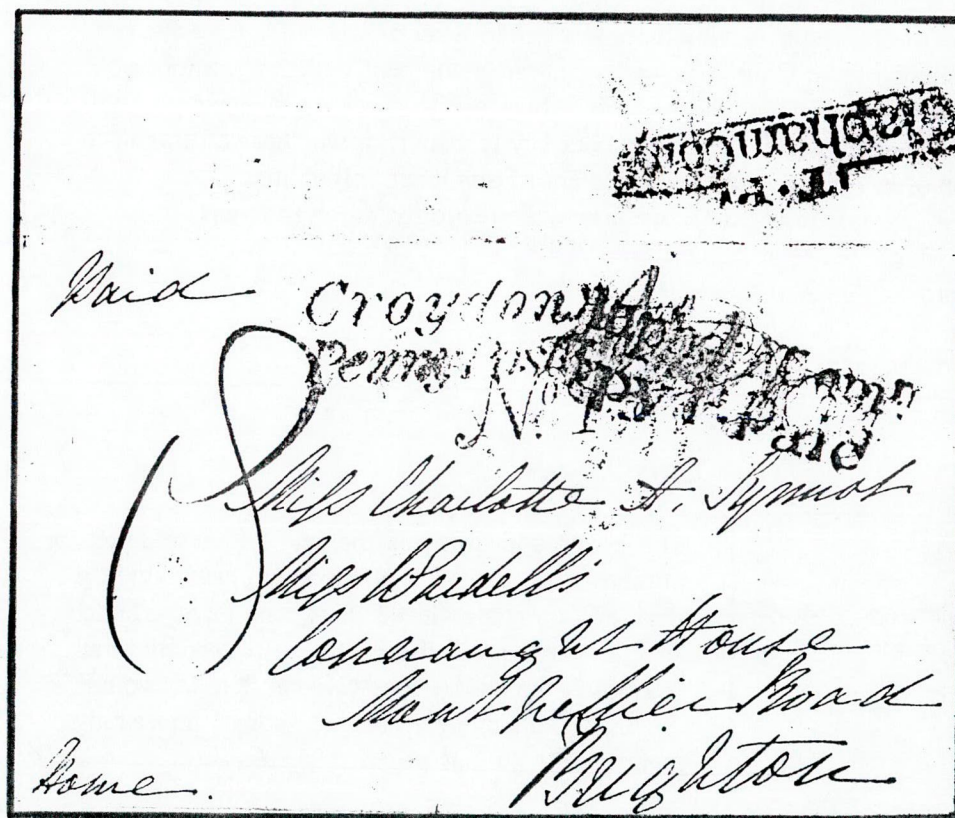 Claphamcom
T.P.
Paid
Croydon
Penny Post
No. 1
Clapham Comn
Ev. prepaid
8
Miss Charlotte A. Synnot
Miss Wardell's
Connaught House
Montpellier Road
Brighton
Home.